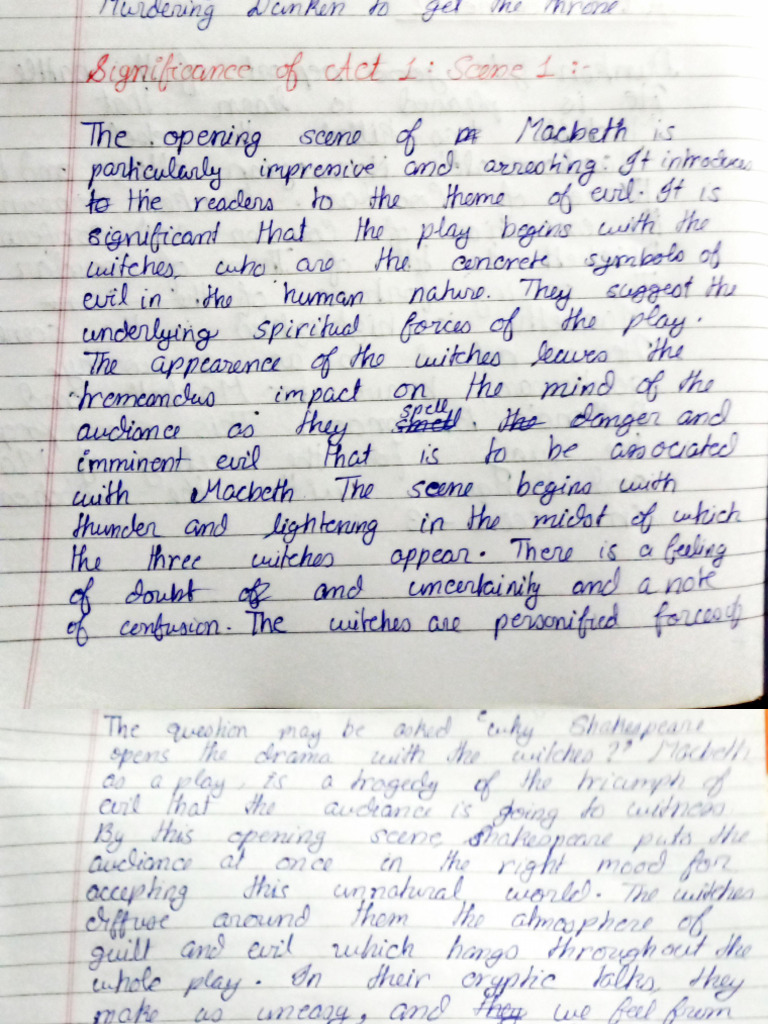 Murdering Dunken to get the throne
Significance of Act 1: Scene 1:-
The opening scene of Macbeth is
particularly impressive and arresting. It introduces
to the readers to the theme of evil. It is
significant that the play begins with the
witches, who are the concrete symbols of
evil in the human nature. They suggest the
underlying spiritual forces of the play.
The appearence of the witches leaves the
tremendus impact on the mind of the
audiance as they spell the danger and
imminent evil that is to be associated
with Macbeth The scene begins with
thunder and lightening in the midst of which
the three witches appear. There is a feeling
of doubt of and uncertainity and a note
of confusion. The witches are personified forces of
The question may be asked "why Shakespeare
opens the drama with the witches?" Macbeth
as a play, is a tragedy of the triumph of
evil that the audiance is going to witness.
By this opening scene, Shakespeare puts the
audiance at once in the right mood for
accepting this unnatural world. The witches
diffuse around them the atmosphere of
guilt and evil which hangs throughout the
whole play. In their cryptic talks, they
make us uneasy, and they we feel from